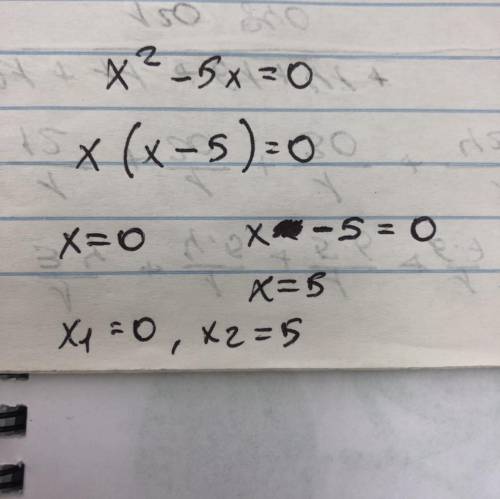 x² - 5x = 0
x (x - 5) = 0
x = 0 x - 5 = 0
x = 5
x₁ = 0, x₂ = 5